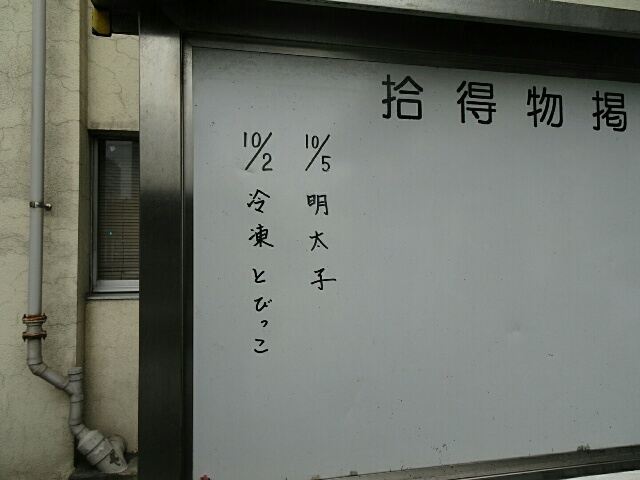 拾得物掲
10/5 明太子
10/2 冷凍とびっこ